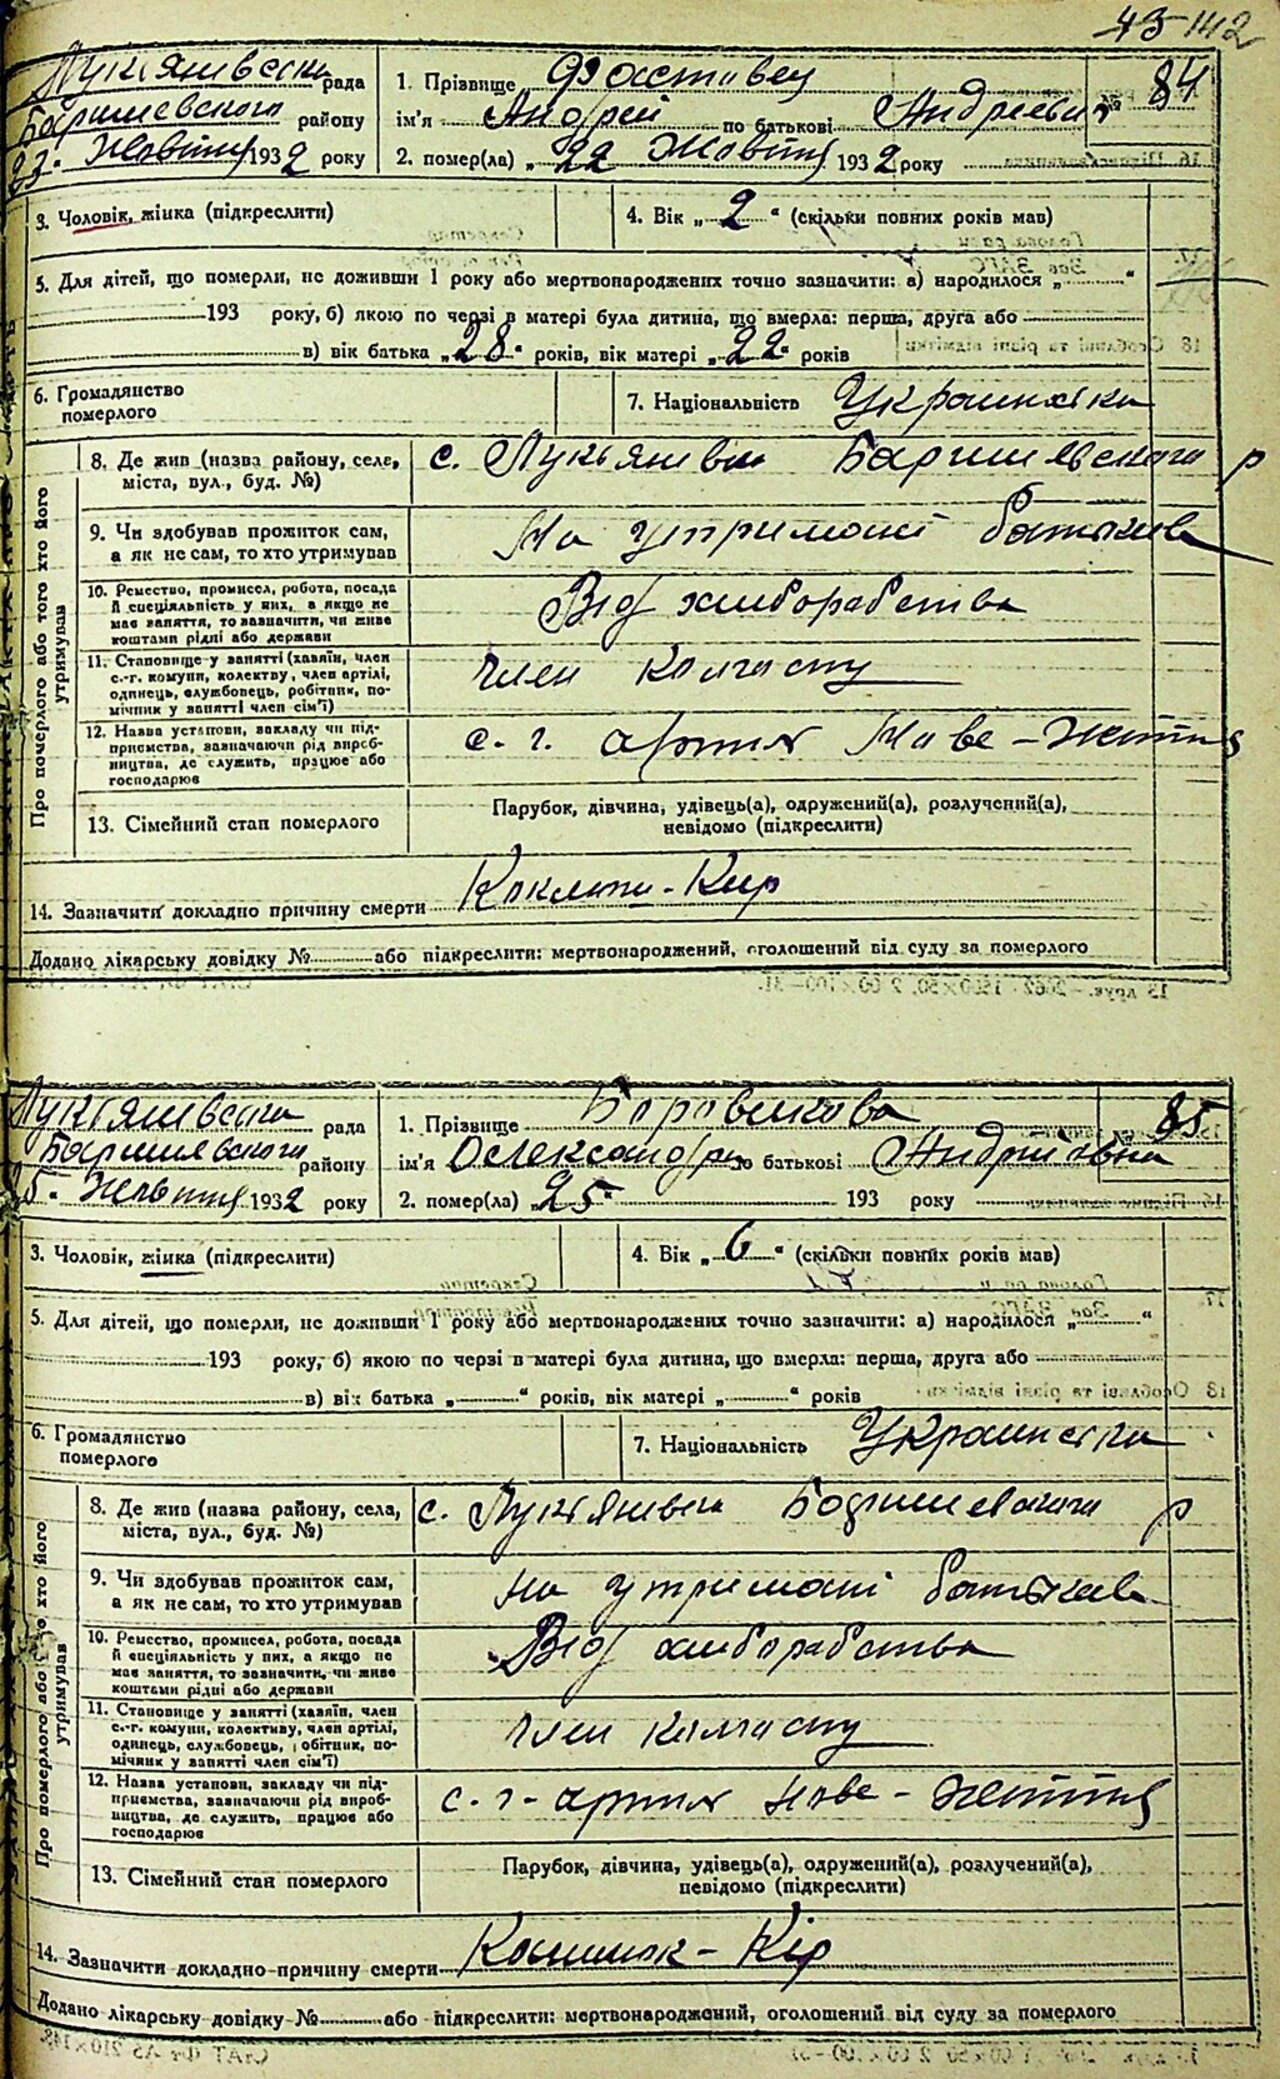 43 142
Лукянивська рада
Баришевского району
23. Жовтня 1932 року
1. Прізвище Фастовец
№ 84
ім'я Андрей по батькові Андреевич
2. помер(ла) „ 22 Жовтня 1932 року
3. Чоловік, жінка (підкреслити)
4. Вік „ 2 “ (скільки повних років мав)
5. Для дітей, що померли, не доживши 1 року або мертвонароджених точно зазначити: а) народилося „ “
193 року, б) якою по черзі в матері була дитина, що вмерла: перша, друга або
в) вік батька „28“ років, вік матері „22“ років
6. Громадянство
померлого
7. Національність Украинська
Про померлого або того хто його
утримував
8. Де жив (назва району, села,
міста, вул., буд. №)
с. Лукьянивка Баришевского р
9. Чи здобував прожиток сам,
а як не сам, то хто утримував
На утримані батьків
10. Ремество, промисел, робота, посада
й спеціяльність у них, а якщо не
має заняття, то зазначити, чи живе
коштами рідні або держави
Від хлиборабства
11. Становище у занятті (хазяїн, член
с.-г. комуни, колективу, член артілі,
одинець, службовець, робітник, по-
мічник у занятті член сім'ї)
член колгоспу
12. Назва установи, закладу чи під-
приємства, зазначаючи рід вироб-
ництва, де служить, працює або
господарює
с. г. артиль Нове-Життя
13. Сімейний стан померлого
Парубок, дівчина, удівець(а), одружений(а), розлучений(а),
невідомо (підкреслити)
14. Зазначити докладно причину смерти Коклюш-Кир
Додано лікарську довідку № або підкреслити: мертвонароджений, оголошений від суду за померлого
Лукьянивська рада
Баришевского району
25. Жовтня 1932 року
1. Прізвище Боровикова
85
ім'я Олександра по батькові Андріївна
2. помер(ла) „ 25“ 193 року
3. Чоловік, жінка (підкреслити)
4. Вік „ 6 “ (скільки повних років мав)
5. Для дітей, що померли, не доживши 1 року або мертвонароджених точно зазначити: а) народилося „ “
193 року, б) якою по черзі в матері була дитина, що вмерла: перша, друга або
в) вік батька „ “ років, вік матері „ “ років
6. Громадянство
померлого
7. Національність Украинська
Про померлого або того хто його
утримував
8. Де жив (назва району, села,
міста, вул., буд. №)
с. Лукьянивка Баришевского р
9. Чи здобував прожиток сам,
а як не сам, то хто утримував
на утримані батьків
10. Ремество, промисел, робота, посада
й спеціяльність у них, а якщо не
має заняття, то зазначити, чи живе
коштами рідні або держави
Від хлиборабства
11. Становище у занятті (хазяїн, член
с.-г. комуни, колективу, член артілі,
одинець, службовець, робітник, по-
мічник у занятті член сім'ї)
член колгоспу
12. Назва установи, закладу чи під-
приємства, зазначаючи рід вироб-
ництва, де служить, працює або
господарює
с. г. артиль нове-життя
13. Сімейний стан померлого
Парубок, дівчина, удівець(а), одружений(а), розлучений(а),
невідомо (підкреслити)
14. Зазначити докладно причину смерти Кір
Додано лікарську довідку № або підкреслити: мертвонароджений, оголошений від суду за померлого